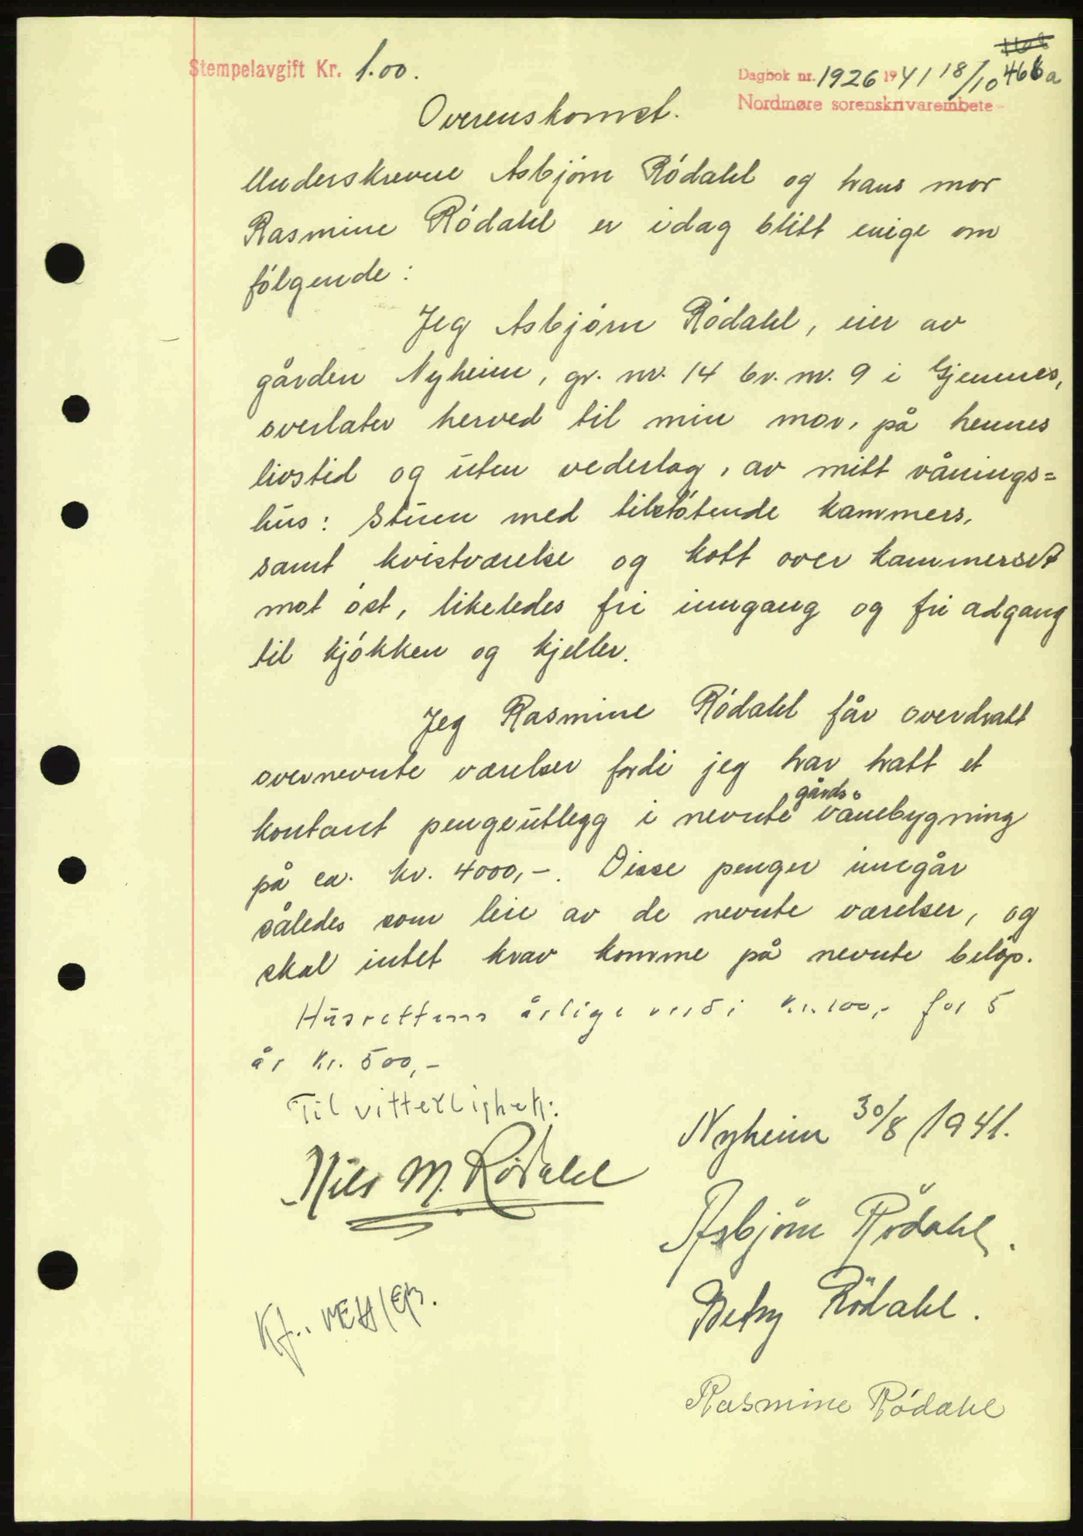 Stempelavgift Kr. 1.00.
Dagbok nr. 1926 1941 18/10 466a
Nordmøre sorenskrivarembete
Overenskomst.
Underskrevne Asbjörn Rödahl og hans mor
Rasmine Rödahl er idag blitt enige om
følgende:
Jeg Asbjörn Rödahl, eier av
gården Nyheim, gr. nr. 14 br. nr. 9 i Gjemnes,
overlater herved til min mor, på hennes
livstid og uten vederlag, av mitt vånings=
hus: Stuen med tilstötende kammers,
samt kvistværelse og kott over kammerset
mot öst, likeledes fri inngang og fri adgang
til kjökken og kjeller.
Jeg Rasmine Rödahl får overdratt
overnevnte værelser fordi jeg har hatt et
kontant pengeutlegg i nevnte gårds vånebygning
på ca. kr. 4000,-. Disse penger inngår
således som leie av de nevnte værelser, og
skal intet krav komme på nevnte beløp.
Husrettens årlige verdi kr. 100,- for 5
år kr. 500,-
Til vitterlighet:
Nyheim 30/8 1941.
Nils M. Rødahl
Asbjörn Rödahl.
Betsy Rödahl.
Rasmine Rödahl